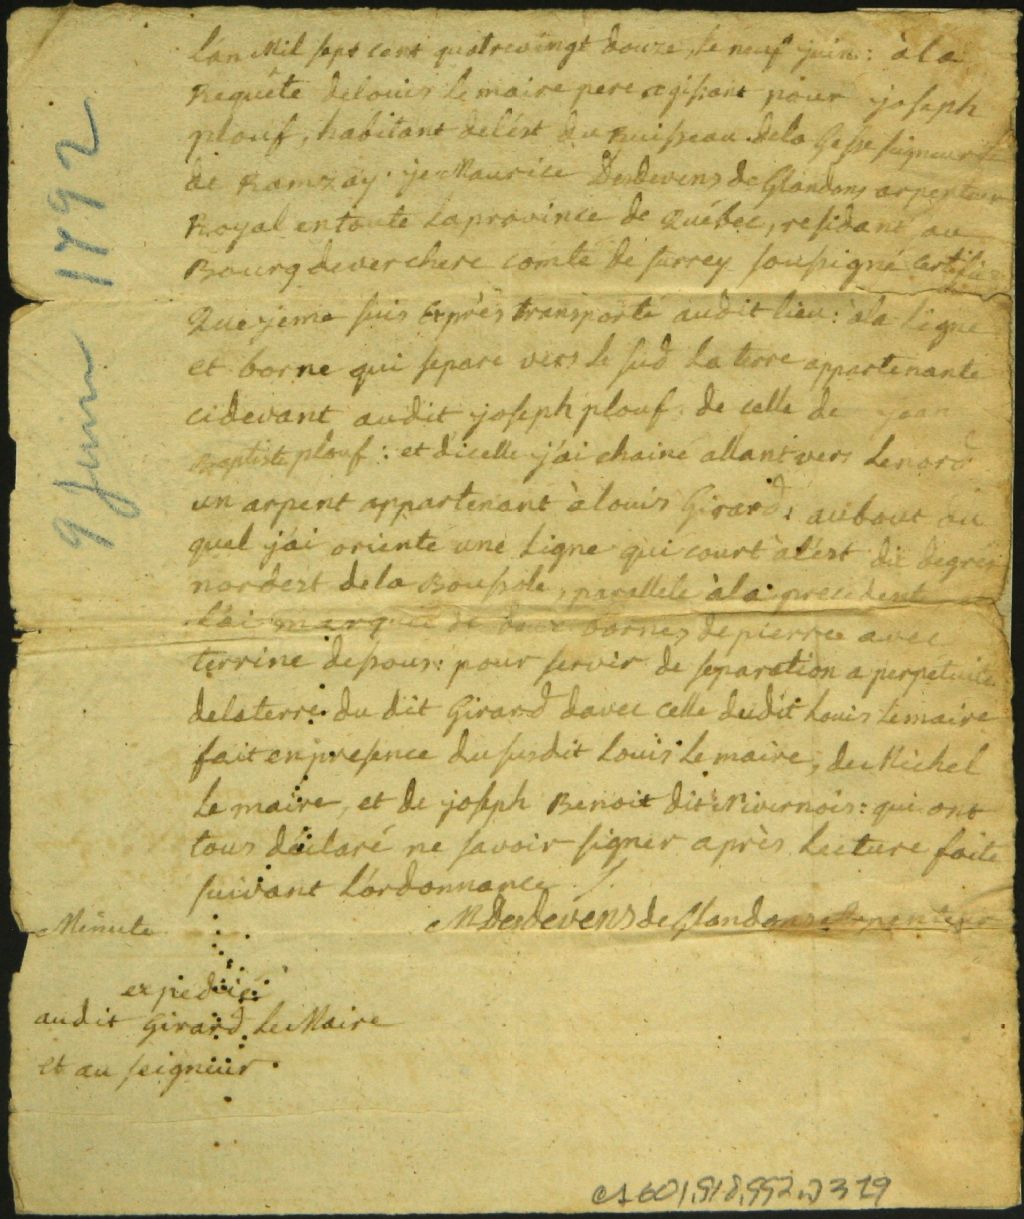 9 juin 1792
L'an Mil sept cent quatrevingt douze, le neuf juin: à la
Requête delouis lemaire pere agissant pour joseph
plouf, habitant delést du Ruisseau dela Gesse seigneurie
de Ramzay. je Maurice Desdevens de Glandons arpenteur
Royal entoute Laprovince de Québec, residant au
Bourg deverchere comté de surrey soussigné certifie
Que jeme suis Exprès transporté audit lieu: àla Ligne
et borne qui separe vers le sud La terre appartenante
cidevant audit joseph plouf de celle de jean
Baptiste plouf: et d'icelle j'ai chainé allant vers Lenord
un arpent appartenant à louis Girard: aubout du
quel j'ai orienté une Ligne qui court àl'est dix degrés
nordest dela Boussole, parallele àla precedente
L'ai marquée de deux bornes depierre avec
terrine dessous: pour servir de separation a perpetuité
delaterre du dit Girard davec celle dudit Louis Lemaire
fait enpresence du susdit Louis Lemaire, de Michel
Le maire, et de joseph Benoit dit Nivernois: qui ont
tous déclaré ne savoir signer après Lecture faite
suivant L'ordonnance
M Desdevens de Glandons Arpenteur
Minute
expedié
audit Girard, Le Maire
et au seigneur